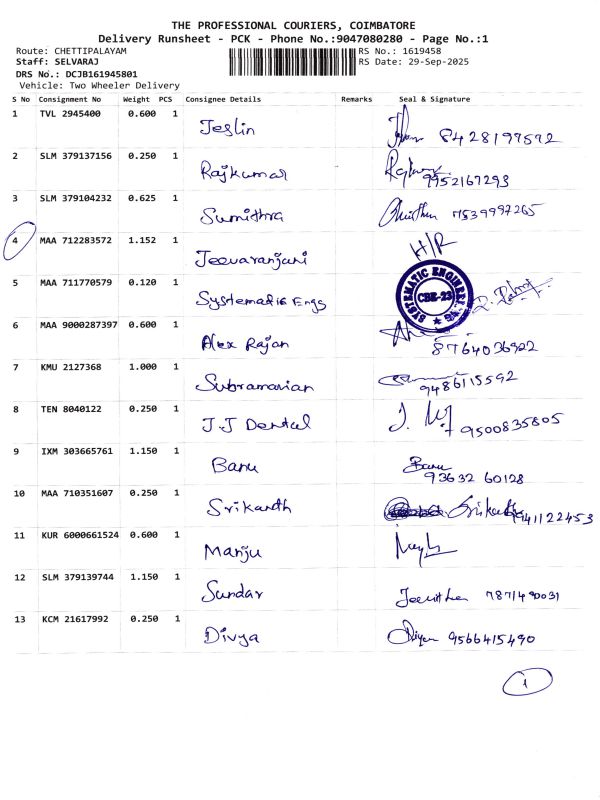 THE PROFESSIONAL COURIERS, COIMBATORE
Delivery Runsheet - PCK - Phone No.:9047080280 - Page No.:1
Route: CHETTIPALAYAM RS No.: 1619458
Staff: SELVARAJ RS Date: 29-Sep-2025
DRS No.: DCJB161945801
Vehicle: Two Wheeler Delivery
S No Consignment No Weight PCS Consignee Details Remarks Seal & Signature
1 TVL 2945400 0.600 1 Jeslin 8428197592
2 SLM 379137156 0.250 1 Rajkumar 9952167293
3 SLM 379104232 0.625 1 Sumithra 7539997265
4 MAA 712283572 1.152 1 Jeevaranjani H/R
5 MAA 711770579 0.120 1 Systematic Engs
SYSTEMATIC ENGINEER CBE-23
6 MAA 9000287397 0.600 1 Alex Rajan 8764036922
7 KMU 2127368 1.000 1 Subramanian 9486115592
8 TEN 8040122 0.250 1 J.J Dental 9500835805
9 IXM 303665761 1.150 1 Banu Banu
93632 60128
10 MAA 710351607 0.250 1 Srikanth Srikanth 9941122453
11 KUR 6000661524 0.600 1 Manju
12 SLM 379139744 1.150 1 Sundar 7871490031
13 KCM 21617992 0.250 1 Divya 9566415490
1